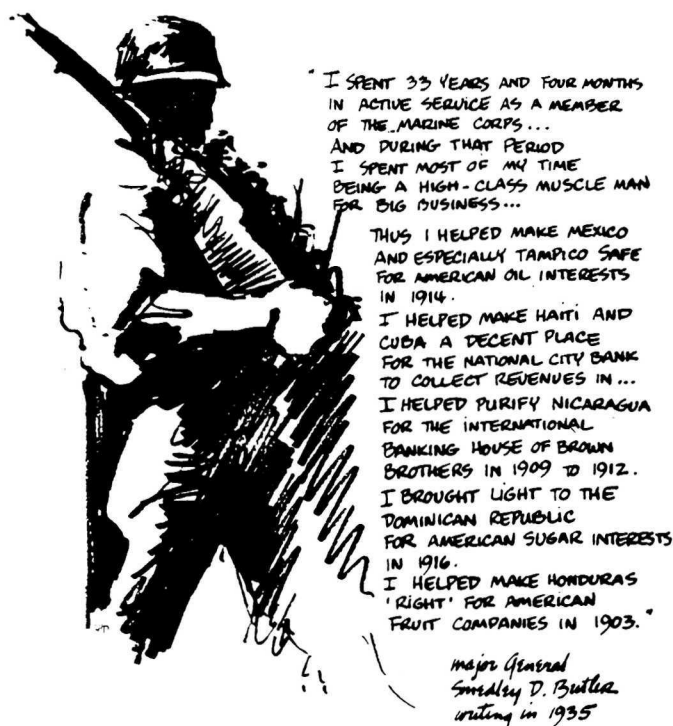 "I SPENT 33 YEARS AND FOUR MONTHS
IN ACTIVE SERVICE AS A MEMBER
OF THE MARINE CORPS...
AND DURING THAT PERIOD
I SPENT MOST OF MY TIME
BEING A HIGH-CLASS MUSCLE MAN
FOR BIG BUSINESS...
THUS I HELPED MAKE MEXICO
AND ESPECIALLY TAMPICO SAFE
FOR AMERICAN OIL INTERESTS
IN 1914.
I HELPED MAKE HAITI AND
CUBA A DECENT PLACE
FOR THE NATIONAL CITY BANK
TO COLLECT REVENUES IN...
I HELPED PURIFY NICARAGUA
FOR THE INTERNATIONAL
BANKING HOUSE OF BROWN
BROTHERS IN 1909 TO 1912.
I BROUGHT LIGHT TO THE
DOMINICAN REPUBLIC
FOR AMERICAN SUGAR INTERESTS
IN 1916.
I HELPED MAKE HONDURAS
'RIGHT' FOR AMERICAN
FRUIT COMPANIES IN 1903."
major General
Smedley D. Butler
writing in 1935